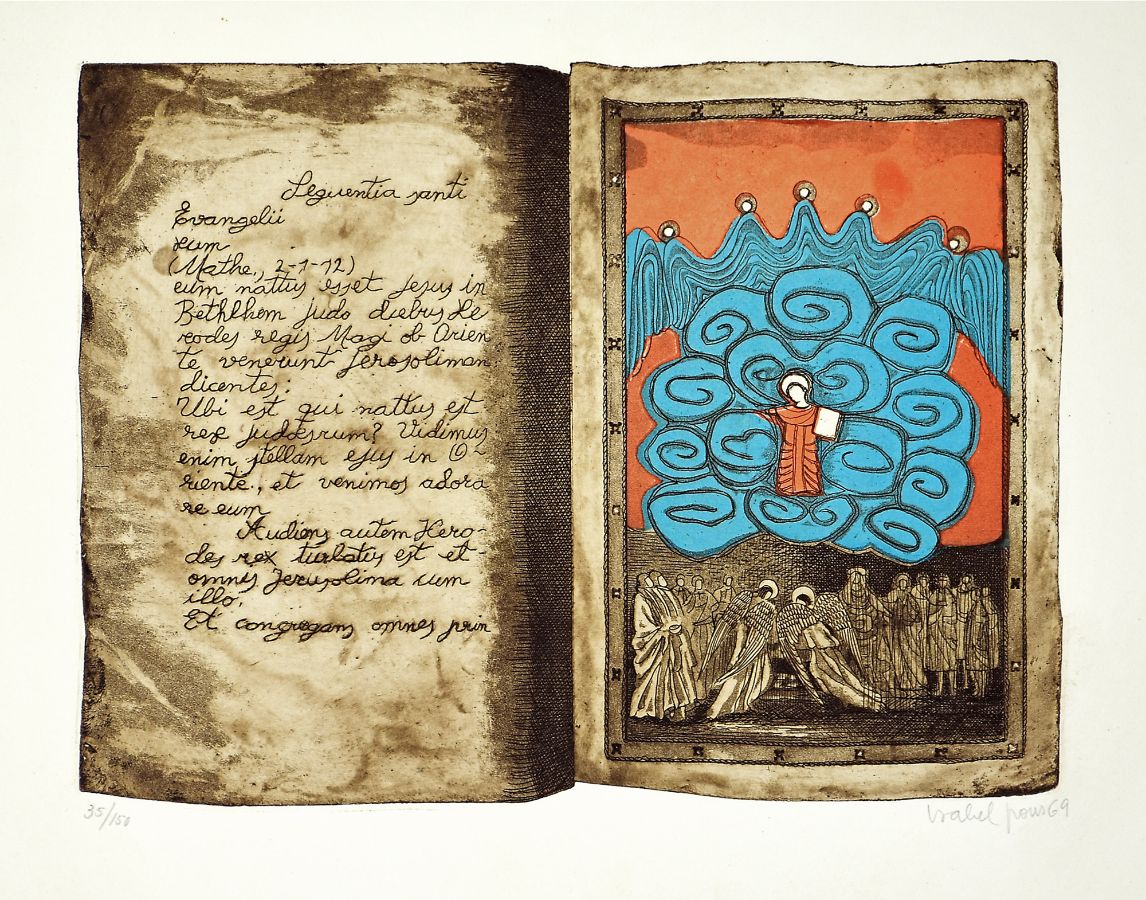 Seguentia santi
Evangelii
sum
(Mathe,, 2-1-12)
eum nattus esset Jesus in
Bethlhem Judo diebus He
rodes regis Magi ob Orien
te venerunt Jerosoliman
dicentes:
Ubi est qui nattus est
rex Judæsrum? Vidimus
enim stellam ejus in O-
riente., et venimos adora
re eum
Audiens autem Hero-
des rex turbatus est et
omnis Jerusolima cum
illo,
Et congregans omnes prin
35/150
Isabel pons 69